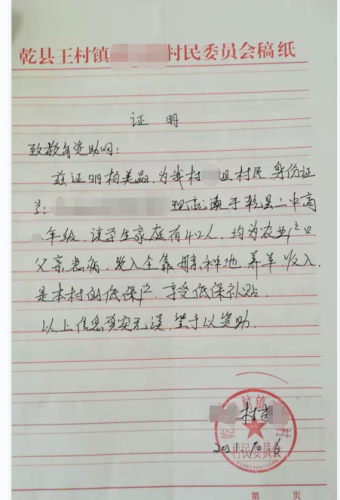 乾县王村镇 村民委员会稿纸
证明
致教育资助网:
兹证明杨美品,为我村 组村民 身份证
号: 现就读于乾县二中高
年级 该学生家庭有4口人,均为农业户口
父亲患病,收入全靠母亲种地、养羊,收入
是本村的低保户,享受低保补贴.
以上信息真实无误 望予以资助.
村
村民委员会
第 页